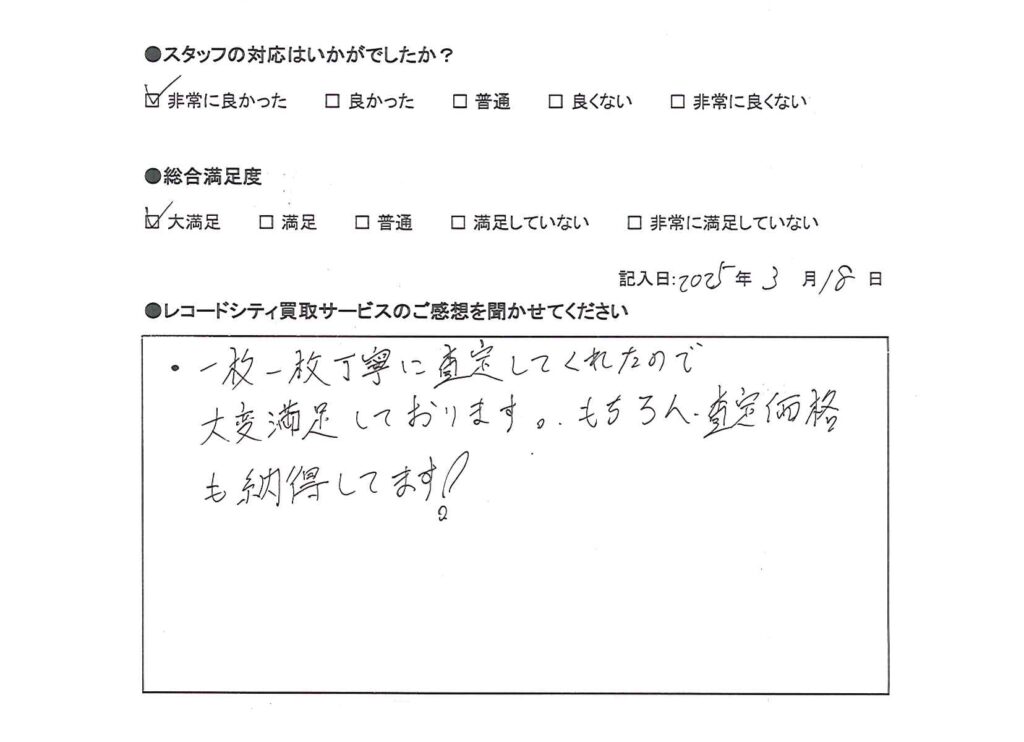 ●スタッフの対応はいかがでしたか?
☑ 非常に良かった □ 良かった □ 普通 □ 良くない □ 非常に良くない
●総合満足度
☑ 大満足 □ 満足 □ 普通 □ 満足していない □ 非常に満足していない
記入日:2025年 3 月 18 日
●レコードシティ買取サービスのご感想を聞かせてください
・一枚一枚丁寧に査定してくれたので
大変満足しております。もちろん、査定価格
も納得してます!